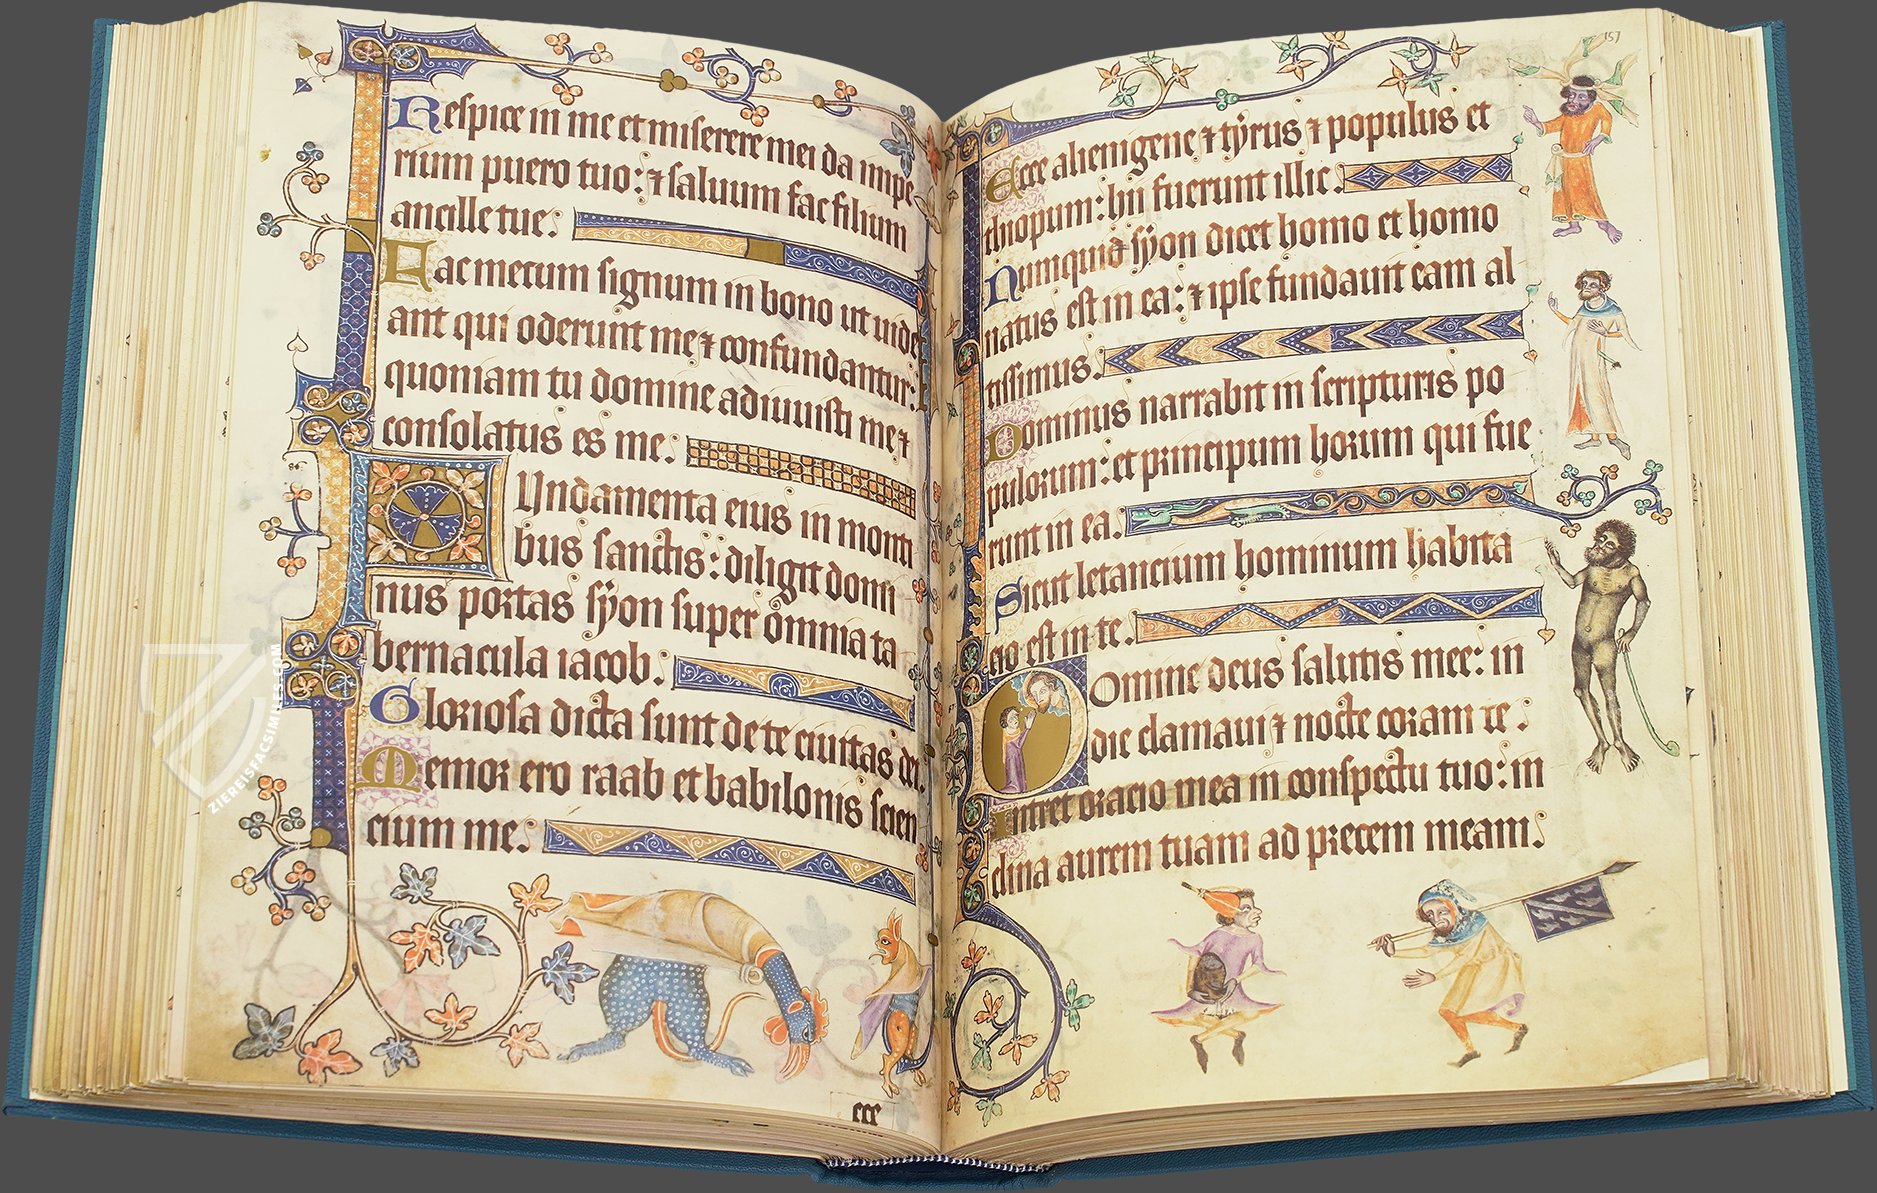 Respice in me et miserere mei da impe
rium puero tuo: ⁊ saluum fac filium
ancille tue:
Fac mecum signum in bono ut uide
ant qui oderunt me ⁊ confundantur:
quoniam tu domine adiuuisti me ⁊
consolatus es me:
Fundamenta eius in monti
bus sanctis: diligit domi
nus portas syon super omnia ta
bernacula iacob.
Gloriosa dicta sunt de te ciuitas dei.
Memor ero raab et babilonis scien
cium me.
ece
157
Ecce alienigene ⁊ tyrus ⁊ populus et
thiopum: hii fuerunt illic.
Numquid syon dicet homo et homo
natus est in ea: ⁊ ipse fundauit eam al
tissimus.
Dominus narrabit in scripturis po
pulorum: et principum horum qui fue
runt in ea.
Sicut letancium hominum habita
cio est in te.
Domine deus salutis mee: in
die clamaui ⁊ nocte coram te:
Intret oracio mea in conspectu tuo: in
clina aurem tuam ad precem meam:
ZIEREISFACSIMILES.COM